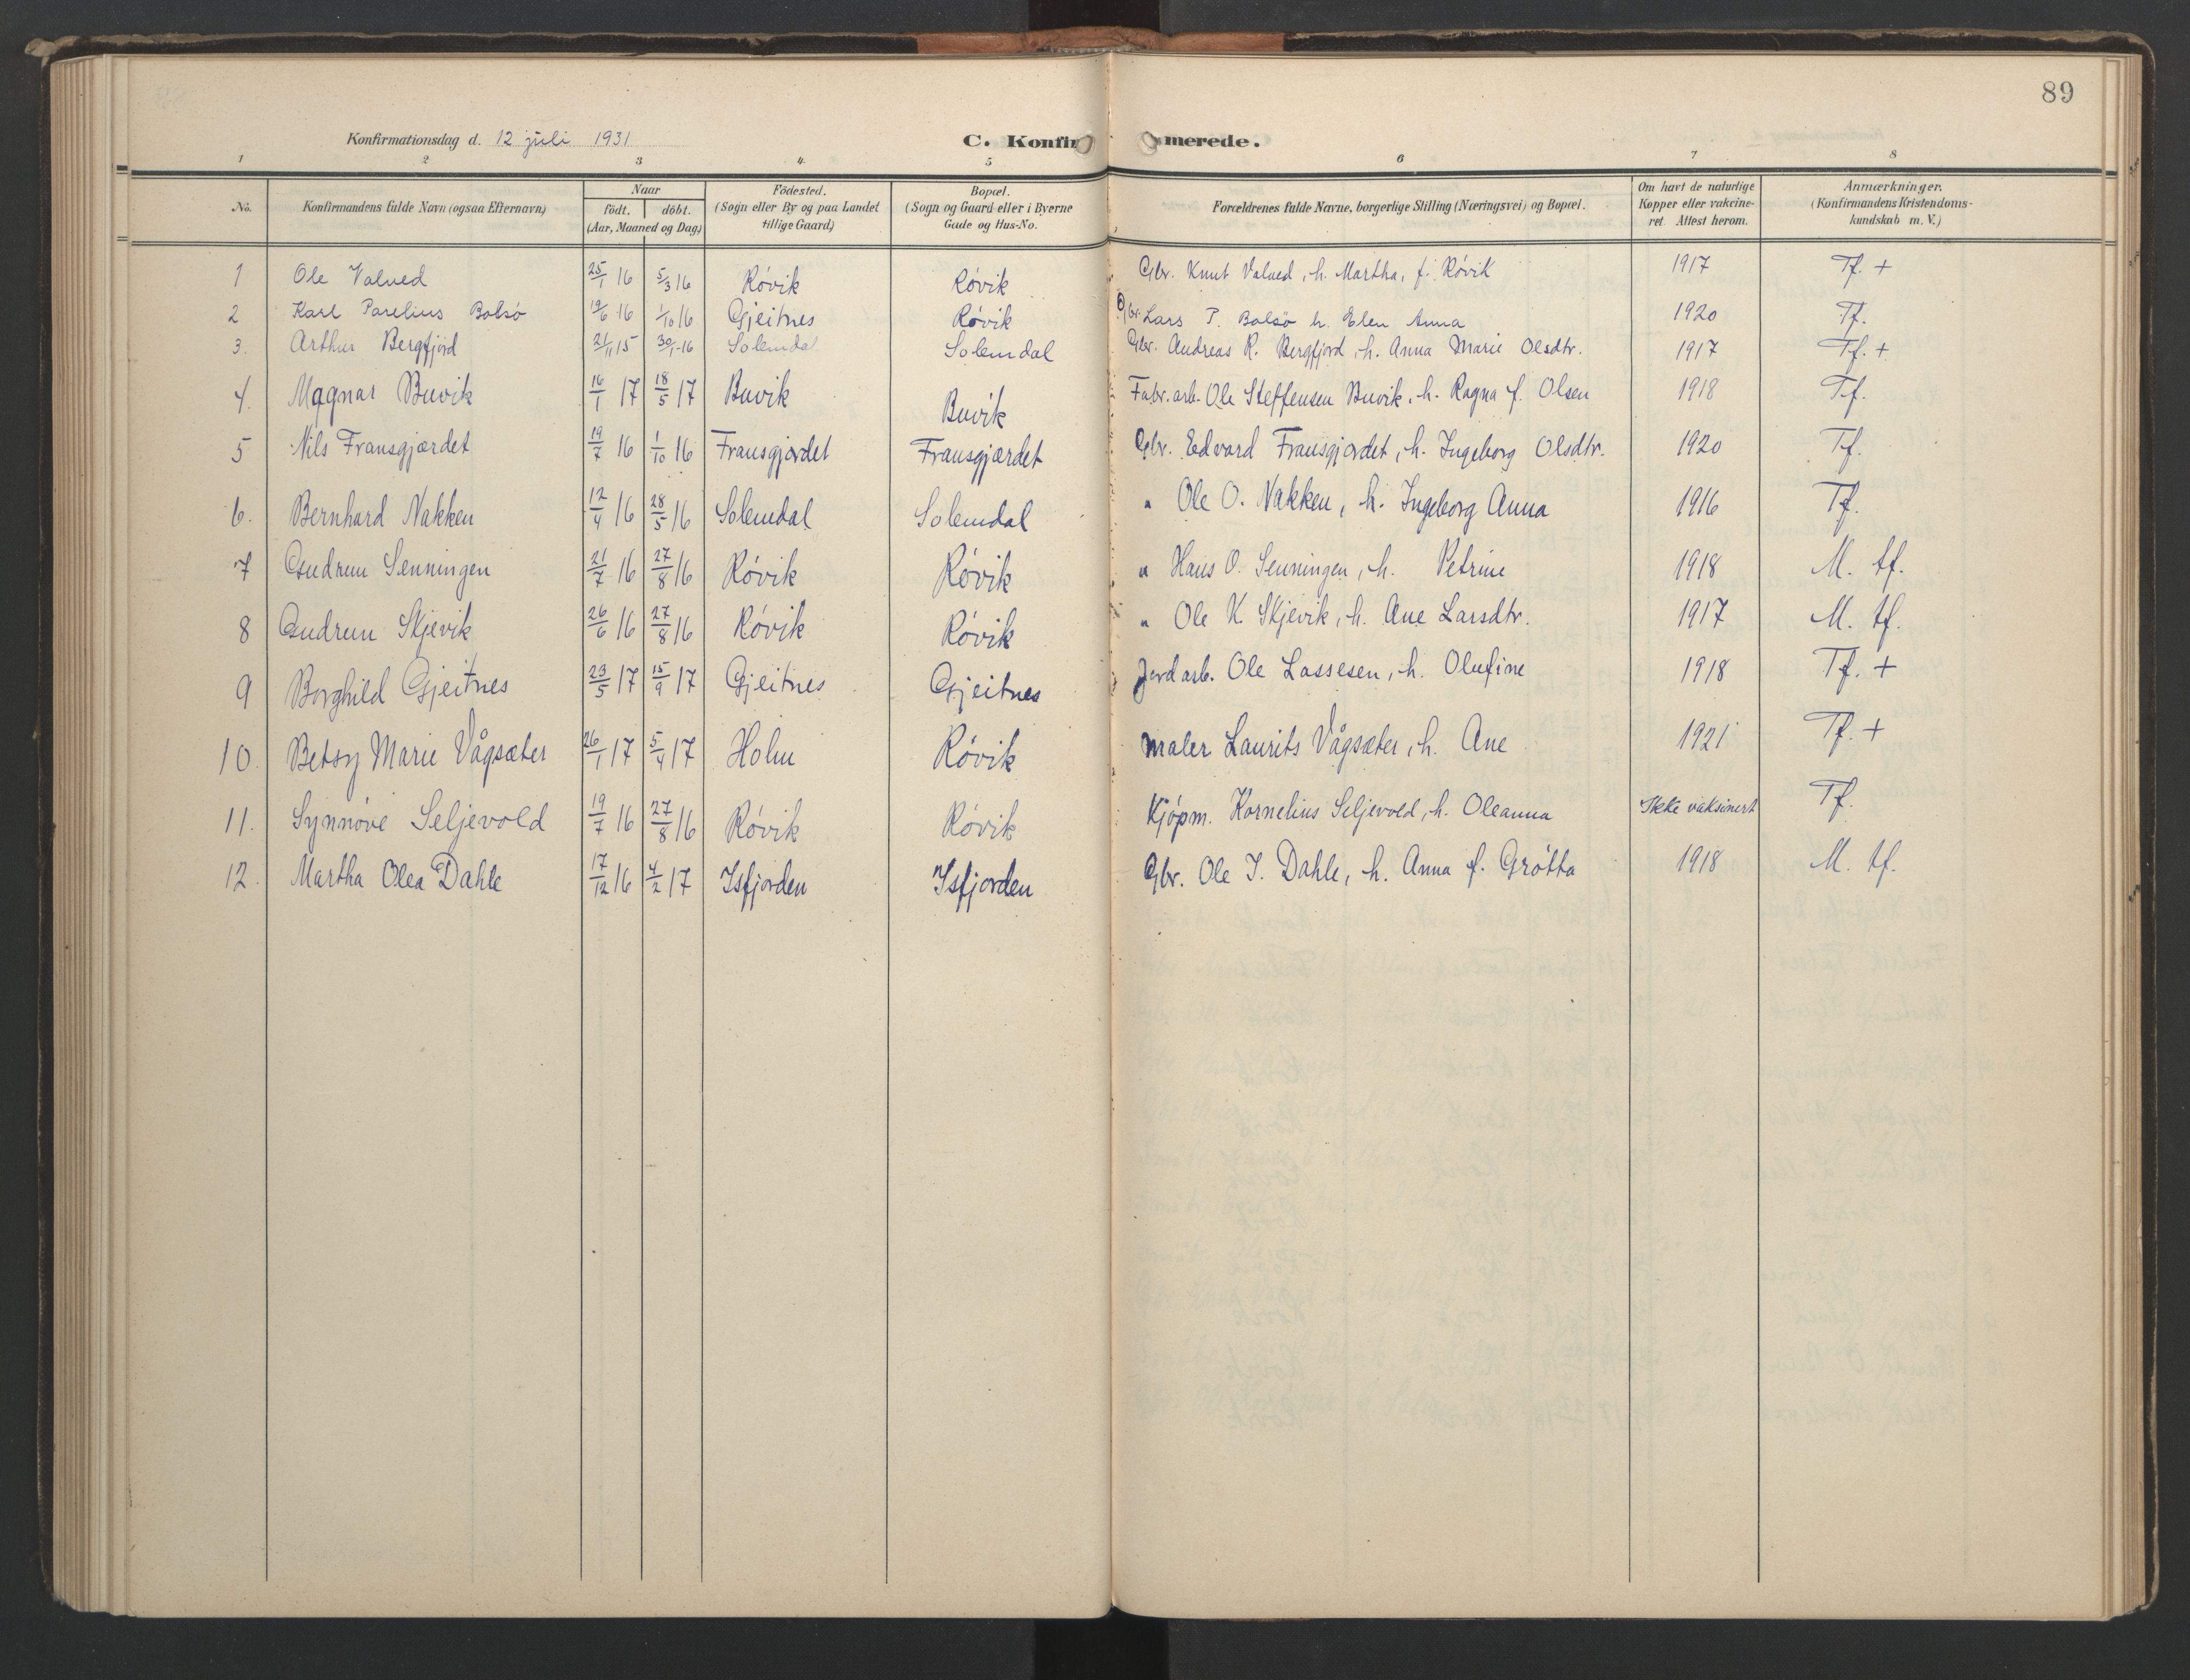 89
Konfirmationsdag d. 12 juli 1931 C. Konfirmerede.
1 2 3 4 5 6 7 8
No. Konfirmandens fulde Navn (ogsaa Efternavn) Naar födt. döbt. (Aar, Maaned og Dag) Födested. (Sogn eller By og paa Landet tillige Gaard) Bopæl. (Sogn og Gaard eller i Byerne Gade og Hus-No. Forældrenes fulde Navne, borgerlige Stilling (Næringsvei) og Bopæl. Om havt de naturlige Kopper eller vakcineret. Attest herom. Anmærkninger. (Konfirmandens Kristendomskundskab m. V.)
1 Ole Valved 25/1 16 5/3 16 Róvik Róvik Gbr. Knut Valved, h. Martha, f. Róvik 1917 Tf. +
2 Karl Parelius Bolsö 19/6 16 1/10 16 Gjeitnes Róvik Gbr. Lars P. Bolsö h. Elen Anna 1920 Tf.
3. Arthur Bergfjord 21/11 15 30/1-16 Solemdal Solemdal Gbr. Andreas R. Bergfjord, h. Anna Marie Olsdtr. 1917 Tf. +
4. Magnar Buvik 16/1 17 18/5 17 Buvik Buvik Fabr.arb. Ole Steffensen Buvik, h. Ragna f. Olsen 1918 Tf.
5 Nils Fransgjærdet 19/7 16 1/10 16 Fransgjærdet Fransgjærdet Gbr. Edvard Fransgjærdet, h. Ingeborg Olsdtr. 1920 Tf.
6. Bernhard Nakken 12/4 16 28/5 16 Solemdal Solemdal " Ole O. Nakken, h. Ingeborg Anna 1916 Tf.
7 Gudrun Senningen 21/7 16 27/8 16 Róvik Róvik " Hans O. Senningen, h. Petrine 1918 M. tf.
8 Gudrun Skjevik 26/6 16 27/8 16 Róvik Róvik " Ole K. Skjevik, h. Ane Larsdtr. 1917 M. tf.
9 Borghild Gjeitnes 23/5 17 15/9 17 Gjeitnes Gjeitnes Jordarb. Ole Lassesen, h. Olufine 1918 Tf. +
10. Betsy Marie Vågsæter 26/1 17 5/4 17 Holm Róvik maler Laurits Vågsæter, h. Ane 1921 Tf. +
11. Synnóve Seljevold 19/7 16 27/8 16 Róvik Róvik Kjópm. Kornelius Seljevold, h. Oleanna Ikke vaksinert Tf.
12. Martha Olea Dahle 17/12 16 4/2 17 Isfjorden Isfjorden Gbr. Ole J. Dahle, h. Anna f. Grótta 1918 M. tf.